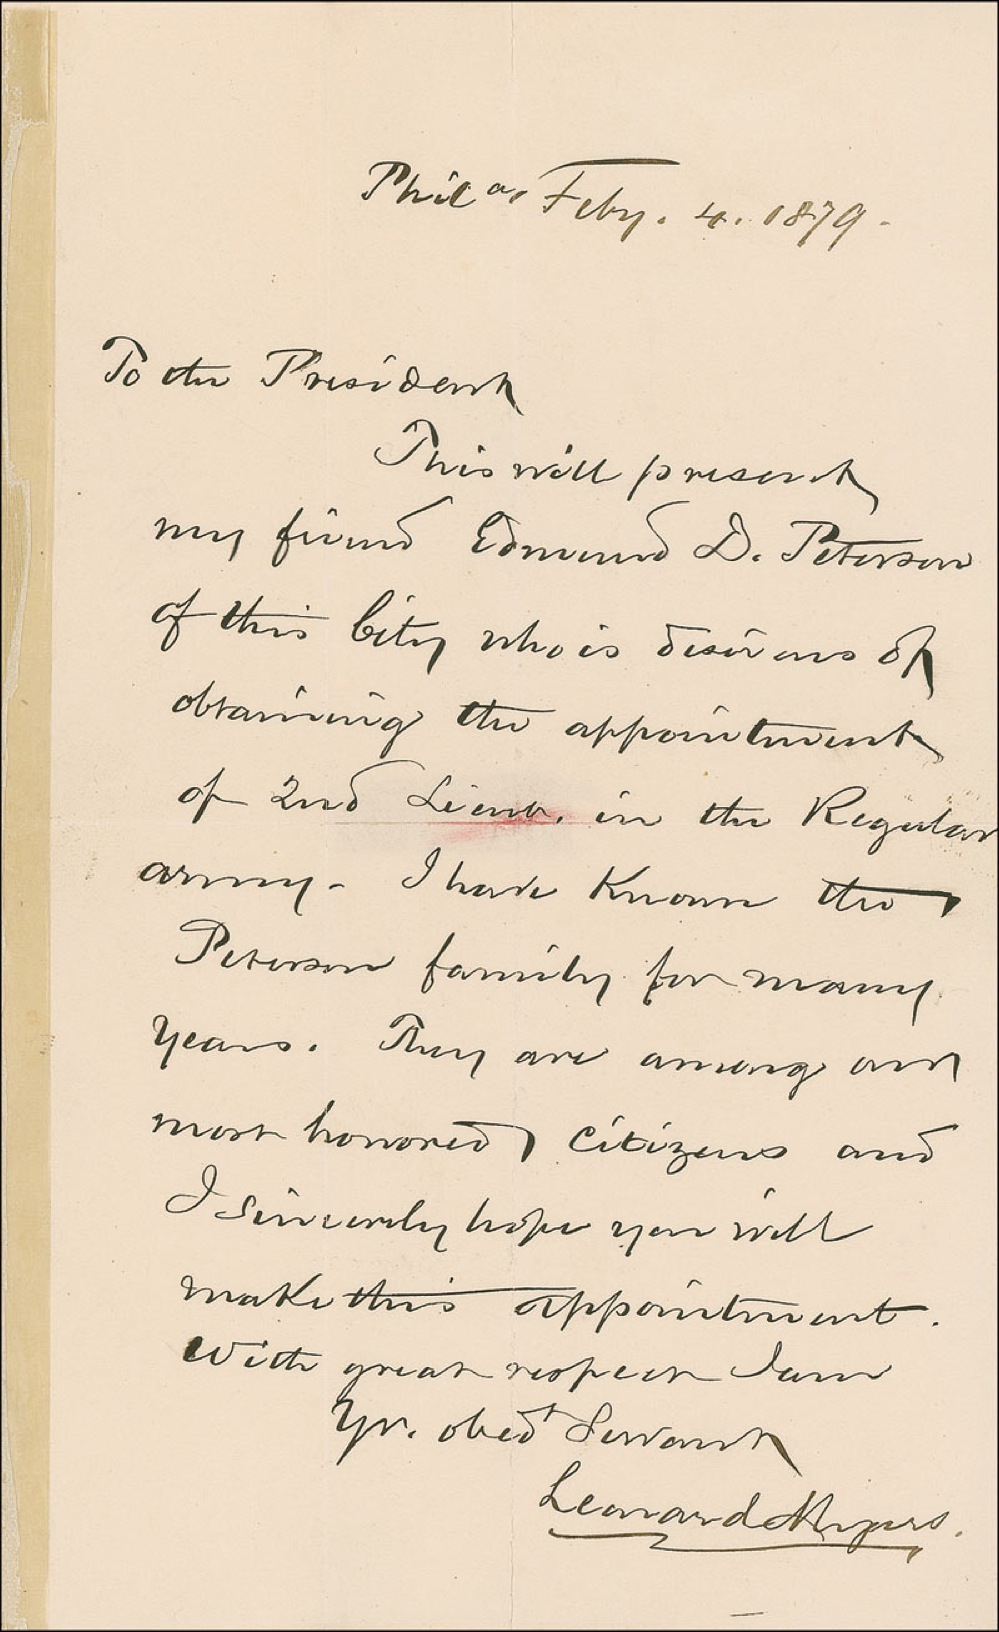 Phila, Feby. 4. 1879.
To the President
This will present
my friend Edmund D. Peterson
of this City who is desirous of
obtaining the appointment
of 2nd Lieut. in the Regular
army. I have Known the
Peterson family for many
years. They are among our
most honored citizens and
I sincerely hope you will
make this appointment.
With great respect I am
Yr. obedt Servant
Leonard Myers.